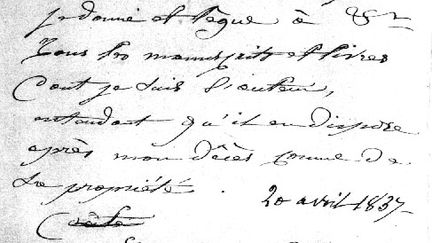 je donne et lègue à &r
Tous les manuscrits et livres
Dont je suis l'auteur,
entendant qu'il en dispose
après mon décès comme de
sa propriété. 20 avril 1837-